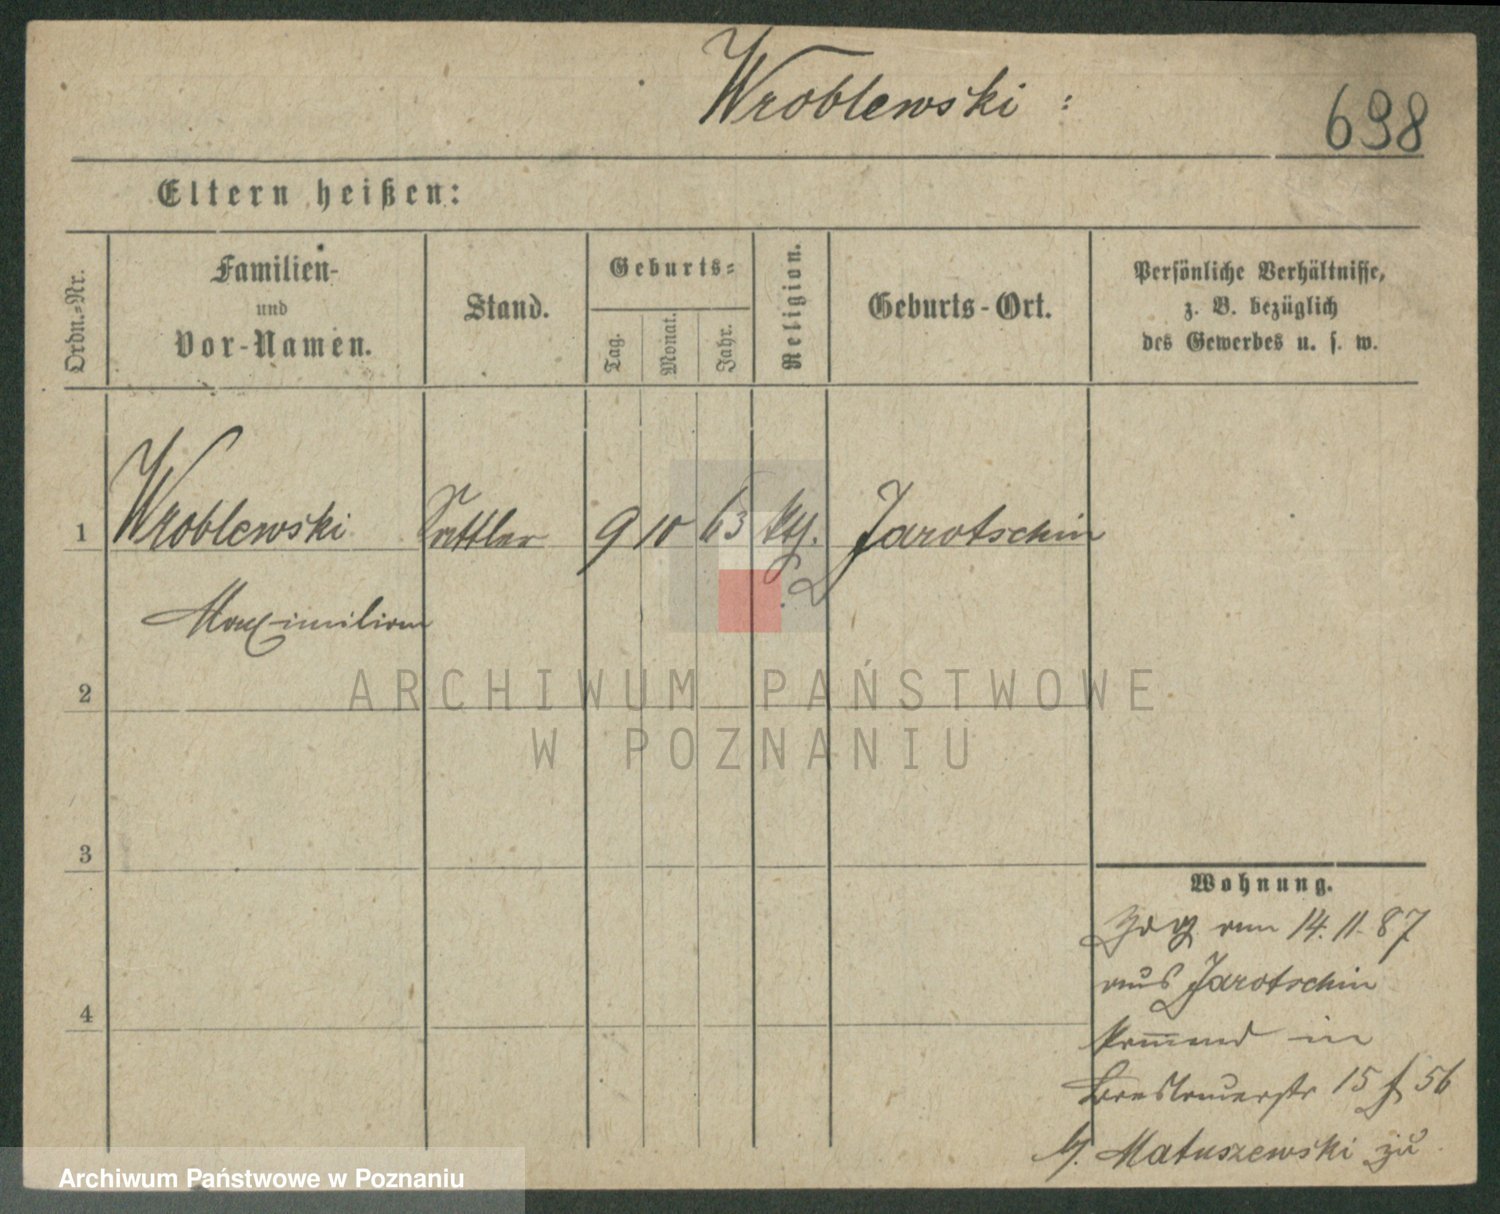 Wroblewski :
698
Eltern heißen:
Ordn.-Nr.
Familien-
und
Vor-Namen.
Stand.
Geburts-
Tag.
Monat.
Jahr.
Religion.
Geburts-Ort.
Persönliche Verhältnisse,
z. B. bezüglich
des Gewerbes u. s. w.
1 Wroblewski Sattler 9 10 63 kth. Jarotschin
Maximilian
2
3
4
Wohnung.
am 14.11.87
aus Jarotschin
kommend in
Breslauerstr 15 / 56
b. Matuszewski zu
ARCHIWUM PAŃSTWOWE
W POZNANIU
Archiwum Państwowe w Poznaniu